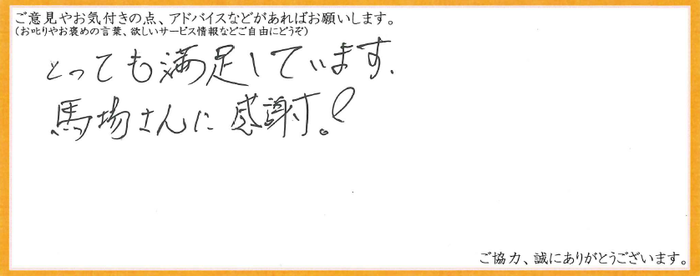 ご意見やお気付きの点、アドバイスなどがあればお願いします。
(お叱りやお褒めの言葉、欲しいサービス情報などご自由にどうぞ)
とっても満足しています.
馬場さんに感謝す。!
ご協力、誠にありがとうございます。